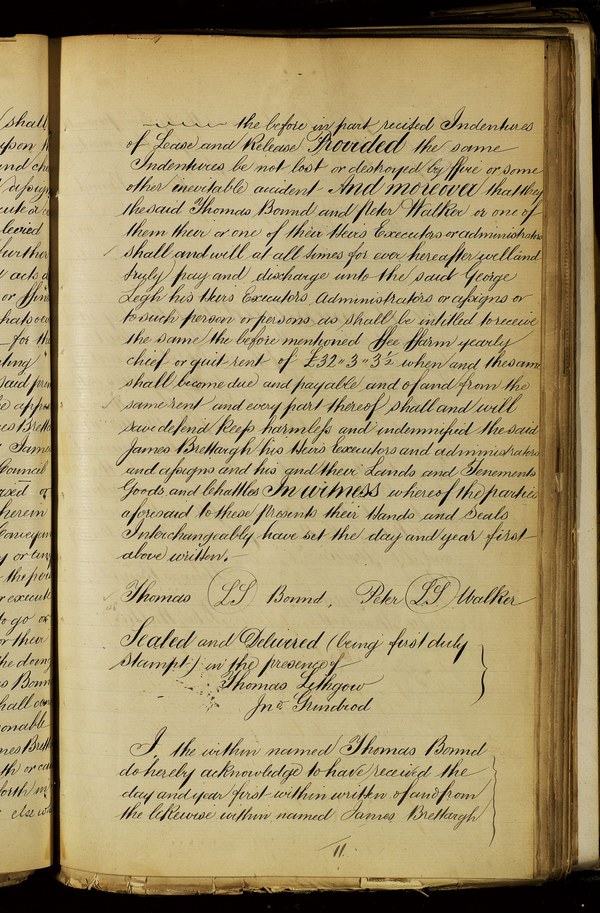 the before in part recited Indentures
of Lease and Release Provided the same
Indentures be not lost or destroyed by ffire or some
other inevitable accident And moreover that they
the said Thomas Bonnd and Peter Walker or one of
them their or one of their Heirs Executors or administrators
shall and will at all times for ever hereafter well and
truly pay and discharge unto the said George
Legh his Heirs Executors Administrators or assigns or
to such person or persons as shall be intitled to receive
the same the before mentioned ffee ffarm yearly
chief or quit rent of £32"3"3½ when and the same
shall become due and payable and of and from the
same rent and every part thereof shall and will
save defend keep harmless and indemnified the said
James Brettargh his Heirs Executors and administrators
and assigns and his and their Lands and Tenements
Goods and Chattles In witness whereof the parties
aforesaid to these Presents their Hands and Seals
Interchangeably have set the day and year first
above written.
Thomas LS Bonnd, Peter LS Walker
Sealed and Delivered (being first duly
stampt) in the presence of
Thomas Lithgow
Jno Grindrod
I the within named Thomas Bonnd
do hereby acknowledge to have received the
day and year first within written of and from
the likewise within named James Brettargh
11